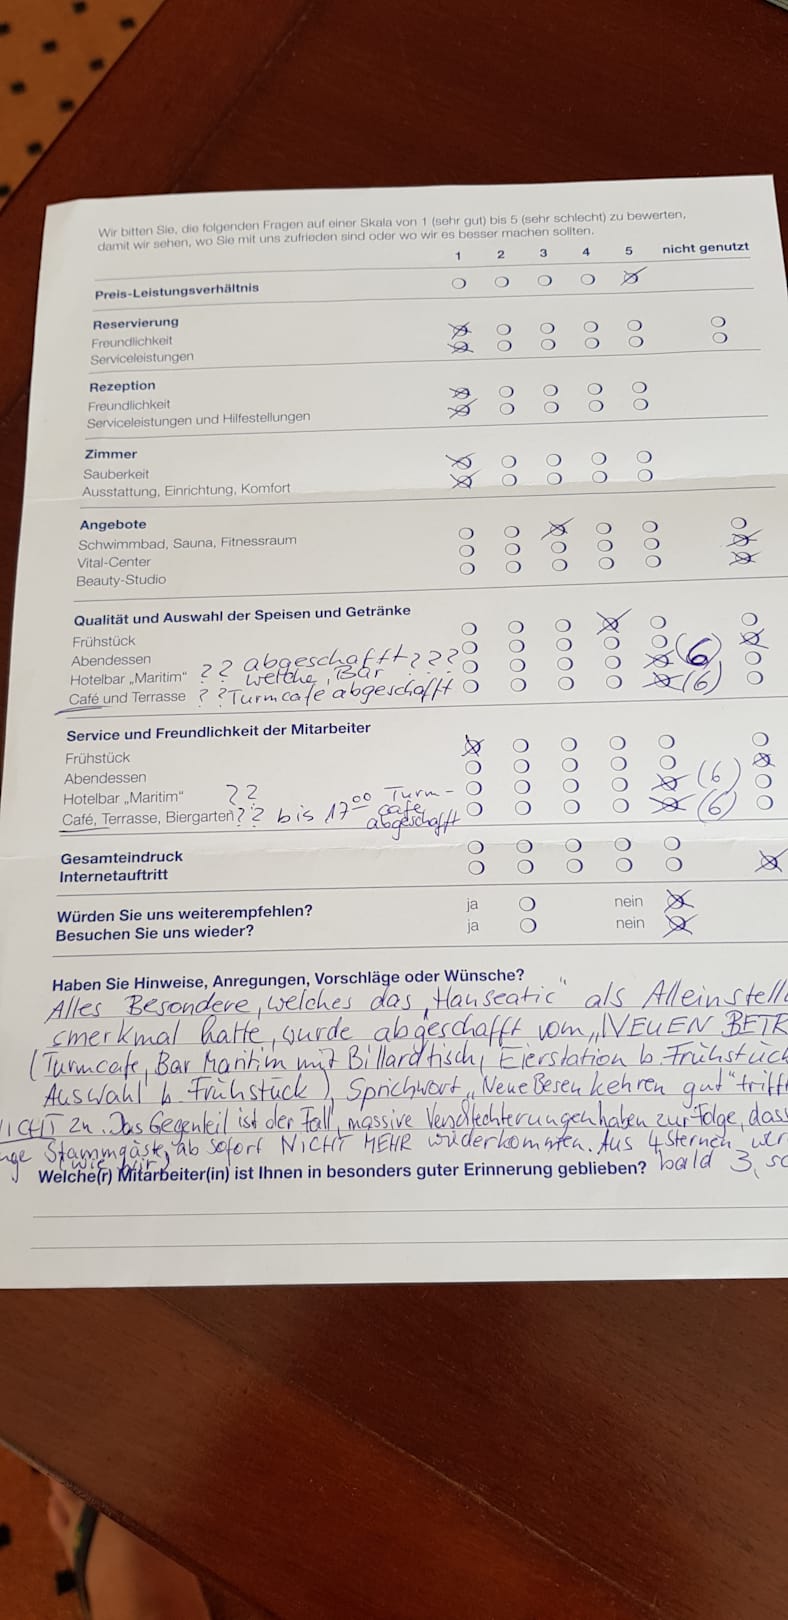 Wir bitten Sie, die folgenden Fragen auf einer Skala von 1 (sehr gut) bis 5 (sehr schlecht) zu bewerten,
damit wir sehen, wo Sie mit uns zufrieden sind oder wo wir es besser machen sollten.
1 2 3 4 5 nicht genutzt
Preis-Leistungsverhältnis
Reservierung
Freundlichkeit
Serviceleistungen
Rezeption
Freundlichkeit
Serviceleistungen und Hilfestellungen
Zimmer
Sauberkeit
Ausstattung, Einrichtung, Komfort
Angebote
Schwimmbad, Sauna, Fitnessraum
Vital-Center
Beauty-Studio
Qualität und Auswahl der Speisen und Getränke
Frühstück
Abendessen
Hotelbar „Maritim“ ?? abgeschafft??? welche Bar (6)
Café und Terrasse ??Turmcafe abgeschafft (6)
Service und Freundlichkeit der Mitarbeiter
Frühstück
Abendessen
Hotelbar „Maritim“ ?? (6)
Café, Terrasse, Biergarten ?? bis 17⁰⁰ Turm-cafe abgeschafft (6)
Gesamteindruck
Internetauftritt
Würden Sie uns weiterempfehlen? ja nein
Besuchen Sie uns wieder? ja nein
Haben Sie Hinweise, Anregungen, Vorschläge oder Wünsche?
Alles Besondere, welches das „Hanseatic“ als Alleinstell
smerkmal hatte, wurde abgeschafft vom „NEUEN BETR
(Turmcafe, Bar Maritim mit Billardtisch, Eierstation b. Frühstück
Auswahl b. Frühstück), Sprichwort „Neue Besen kehren gut“ triff
NICHT zu. Das Gegenteil ist der Fall, massive Verschlechterungen haben zur Folge, dass
nge Stammgäste, wie wir, ab sofort NICHT MEHR wiederkommen. Aus 4 Sternen wer
bald 3, so
Welche(r) Mitarbeiter(in) ist Ihnen in besonders guter Erinnerung geblieben?